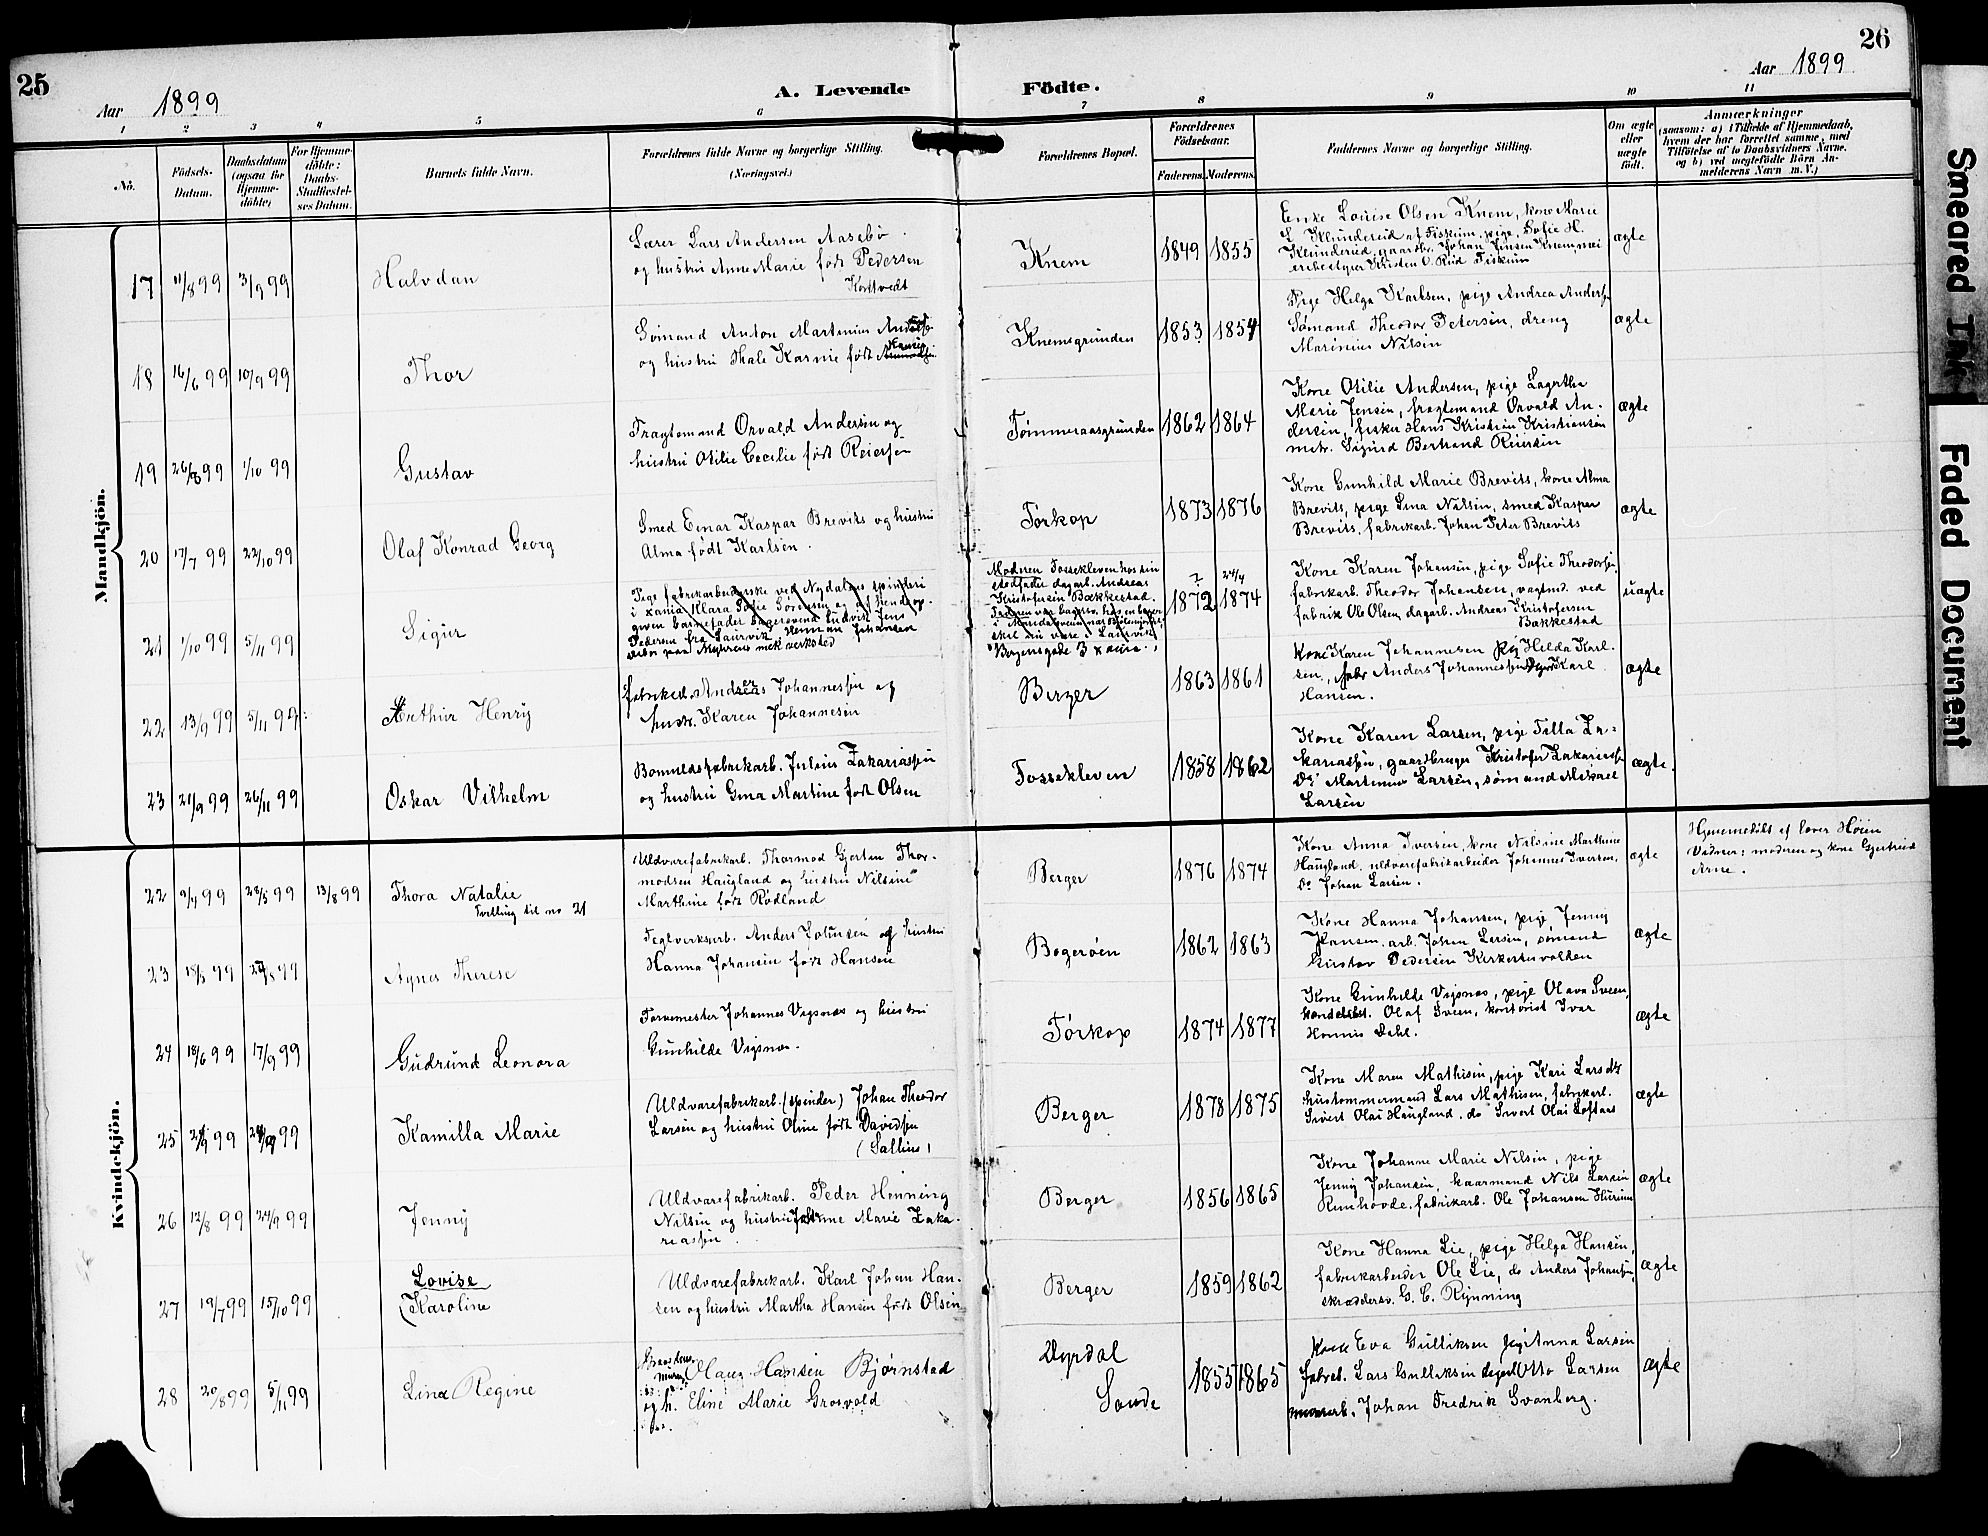 25
26
Aar 1899
A. Levende Födte.
Aar 1899
1 2 3 4 5 6 7 8 9 10 11
No.
Födsels-
Datum.
Daabsdatum
(ogsaa for
Hjemme-
döbte)
For Hjemme-
döbte:
Daabs-
Stadfæstel-
ses Datum.
Barnets fulde Navn.
Forældrenes fulde Navne og borgerlige Stilling.
(Næringsvei.)
Forældrenes Bopæl.
Forældrenes
Födselsaar.
Faderens. Moderens.
Faddernes Navne og borgerlige Stilling.
Om ægte
eller
uægte
født.
Anmærkninger
(saasom: a) i Tilfælde af Hjemmedaab,
hvem der har forrettet samme, med
Tilføielse af to Daabsvidners Navne,
og b) ved uægtefödte Börn An-
melderens Navn m. V.)
Mandkjön.
17 11/8 99 3/9 99
Halvdan
Lærer Lars Andersen Aasebö
og hustru Anne Marie født Pedersen
Korttvedt
Knem
1849 1855
Enke Louise Olsen Knem, kone Marie
L. Klundereid af Fiskum, pige Sofie H.
Klundereid, gaardbr. Johan Jensen Knem, mei
eribestyrer Kristen O. Rud Fiskum
ægte
18 16/6 99 10/9 99
Thor
Sømand Anton Martinius
og hustru Thale Karnie født
Knemsgrunden
1853 1854
Pige Helga Karlsen, pige Andrea Andersen
Sømand Theodor Petersen, dreng
Marinius Nilsen
ægte
19 26/8 99 1/10 99
Gustav
Fragtemand Orvald Andersen og
hustru Otilie Cecilie født Reiersen
Tømmeraasgrunden
1862 1864
Kone Otilie Andersen, pige Lagertha
Marie Jensen, fragtemand Orvald An-
dersen, fisker Hans Kristian Kristiansen
matr. Sigurd Bertrand Reiersen
ægte
20 17/7 99 22/10 99
Olaf Konrad Georg
Smed Einar Kaspar Breviks og hustru
Alma født Karlsen.
Torkop
1873 1876
Kone Gunhild Marie Brevits, kone Alma
Brevits, pige Lina Nilsen, smed Kaspar
Brevits, fabrikarb. Johan Peter Brevits
ægte
21 1/10 99 5/11 99
Sigur
Pige fabrikarbeiderske ved Nydalens spinderi
i Xania Klara Sofie Sørensen og af hende op-
given barnefader bagersvend Ludvik Jens
Pedersen fra Laurvik. Herman Johansen
arbr paa Myhrens mek verksted
Moderen Fossekleven hos sin
stedfader dagarb. Andreas
Kristofersen Bækkestad.
Bergensgade 3 Xania.
1872 24/4 1874
Kone Karen Johansen, pige Sofie Theodorsen,
fabrikarb. Theodor Johansen, vagtmd. ved
fabrik Ole Olsen, dagarb. Andreas Kristofersen
Bækkestad
uægte
22 13/9 99 5/11 99
Arthur Henry
fabrikarb. Anders Johannessen og
hustr. Karen Johannesen
Berger
1863 1861
Kone Karen Johannesen pig Helda Karl-
sen, fabr Anders Johannessen Karl
Hansen.
ægte
23 21/9 99 26/11 99
Oskar Vilhelm
Bomuldsfabrikarb. Julius Zakariassen
og hustru Gina Martine født Olsen
Fossekleven
1858 1862
Kone Karen Larsen, pige Tilla Za-
kariassen, gaardbruger Kristofer Zakariassen
Do Martinus Larsen, sømand Mikael
Larsen
ægte.
Kvindekjön.
22 9/4 99 28/5 99 13/8 99
Thora Natalie
Tvilling til no 21
Uldvarefabrikarb. Thormod Gjerten Thor-
modsen Haugland og hustru Nilsine
Marthine født Rødland
Berger
1876 1874
Kone Anna Iversen, kone Nilsine Marthine
Haugland, uldvarefabrikarbeider Johannes Iversen,
Do Johan Larsen.
ægte
Hjemmedøbt af lærer Høien
Vidner: moderen og kone Gjertrud
Arne.
23 18/3 99 27/8 99
Agnes Therese
Teglverksarb. Anders Johansen og hustru
Hanna Johansen født Hansen
Bogerøen
1862 1863
Kone Hanna Johansen, pige Jenny
Hansen, arb. Johan Larsen, sømand
Gustav Pedersen Kirkestuvolden
ægte
24 18/6 99 17/9 99
Gudrund Leonora
Farvemester Johannes Vigsnæs og hustru
Gunhilde Vigsnæs.
Torkop
1874 1877
Kone Gunhilde Vigsnæs, pige Olava Sveen,
handelsbet. Olaf Sveen, kontorist Ivar
Dahl.
ægte
25 99 99
Kamilla Marie
Uldvarefabrikarb. (spinder) Johan Theodor
Larsen og hustru Oline født Davidsen
(Sallius)
Berger
1878 1875
Kone Maren Mathisen, pige Kari Larsdtr
hustømmermand Lars Mathisen, fabrikarb.
Sivert Olai Haugland, do Sivert Olai Loftaas
ægte
26 12/8 99 24/9 99
Jenny
Uldvarefabrikarb. Peder Henning
Nilsen og hustru Johanne Marie Zaka-
riassen.
Berger
1856 1865
Kone Johanne Marie Nilsen, pige
Jenny Johansen, gaarmand Nils Larsen
Runhovde, fabrikarb. Ole Johansen Hurum
ægte
27 19/7 99 15/10 99
Lovise
(Karoline
Uldvarefabrikarb. Karl Johan Han-
sen og hustru Martha Hansen født Olsen
Berger
1859 1862
Kone Hanna Lie, pige Helga Hansen,
fabrikarbeider Ole Lie, do Anders Johansen,
skrædderm. G. C. Rynning
ægte
28 20/8 99 5/11 99
Lina Regine
Hans Hansen Bjørnstad
og h. Eline Marie Grosvold
Dyrdal
Sande
1855 1865
Kone Eva Gulliksen pig Anna Larsen
fabrab. Lars Gulliksen Otto Larsen
murarb. Johan Fredrik Svanberg.
ægte
Smeared Ink
Faded Document